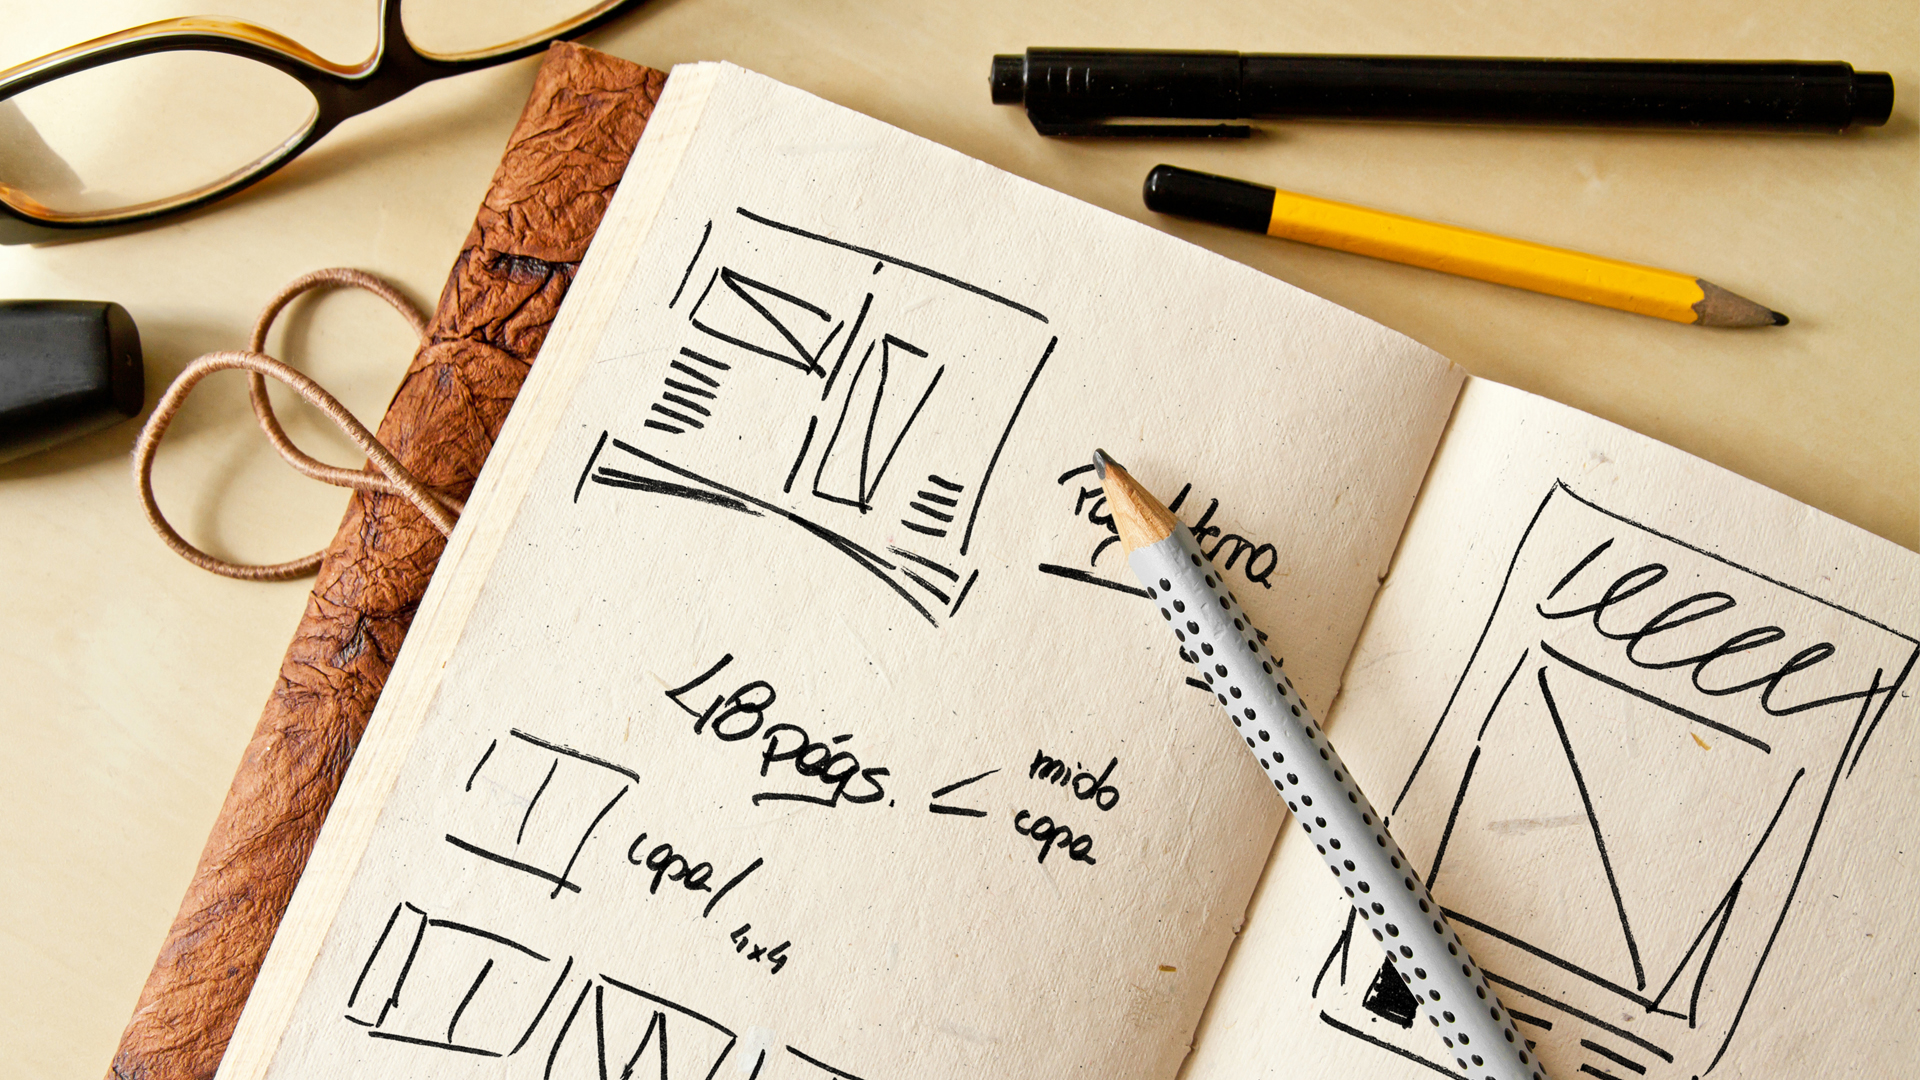 48 págs. < miolo
capa
capa/
4x4